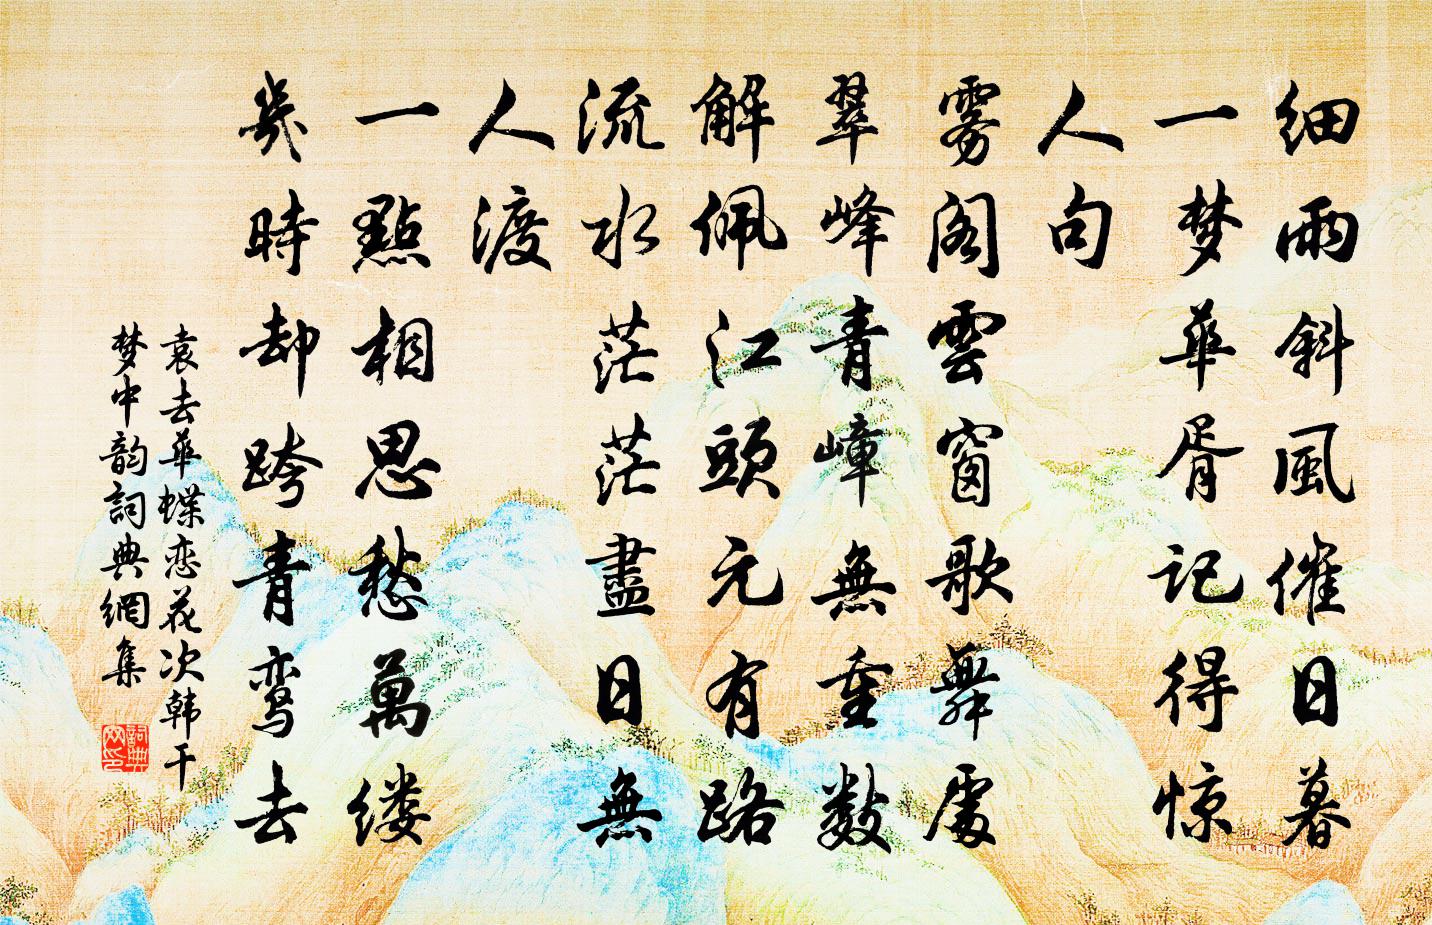 细雨斜風催日暮
一梦華胥记得惊
人句
雾阁雲窗歌舞處
翠峰青嶂無重数
解佩江頭元有路
流水茫茫盡日無
人渡
一點相思愁萬缕
幾時却跨青鸾去
袁去華蝶恋花次韩干
梦中韵詞典網集